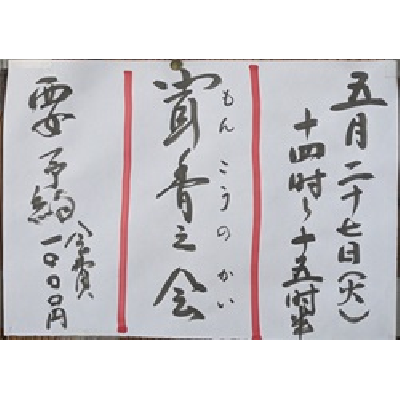 五月二十七日(火)
十四時〜十五時半
もんこうのかい
賞香之会
要予約
会費
一〇〇〇円